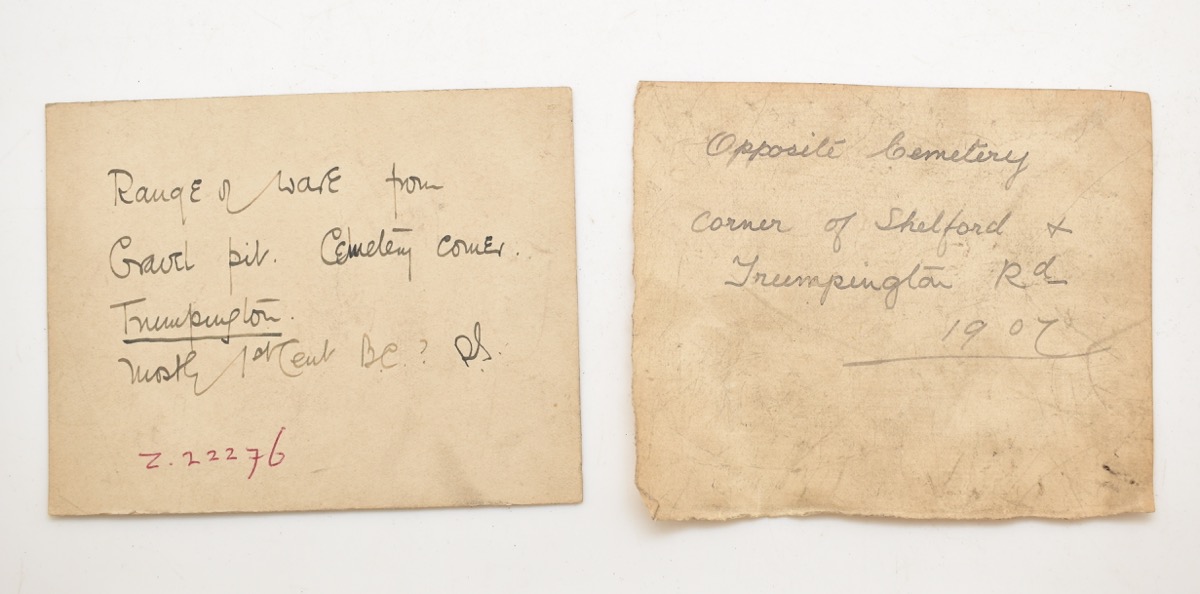 Range of ware from
Gravel pit. Cemetery corner.
Trumpington.
Mostly 1st Cent B.C.?
Z.22276
Opposite Cemetery
corner of Shelford &
Trumpington Rd
1907